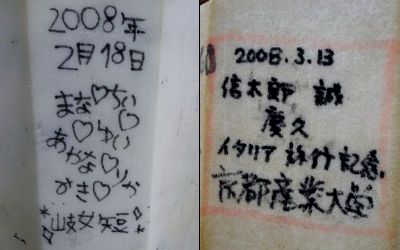 2008年
2月18日
まな♡ちい
あ♡ゆい
かな♡り
き♡りか
岐女短
2008.3.13
信太郎 誠
慶久
イタリア 旅行記念
京都産業大学